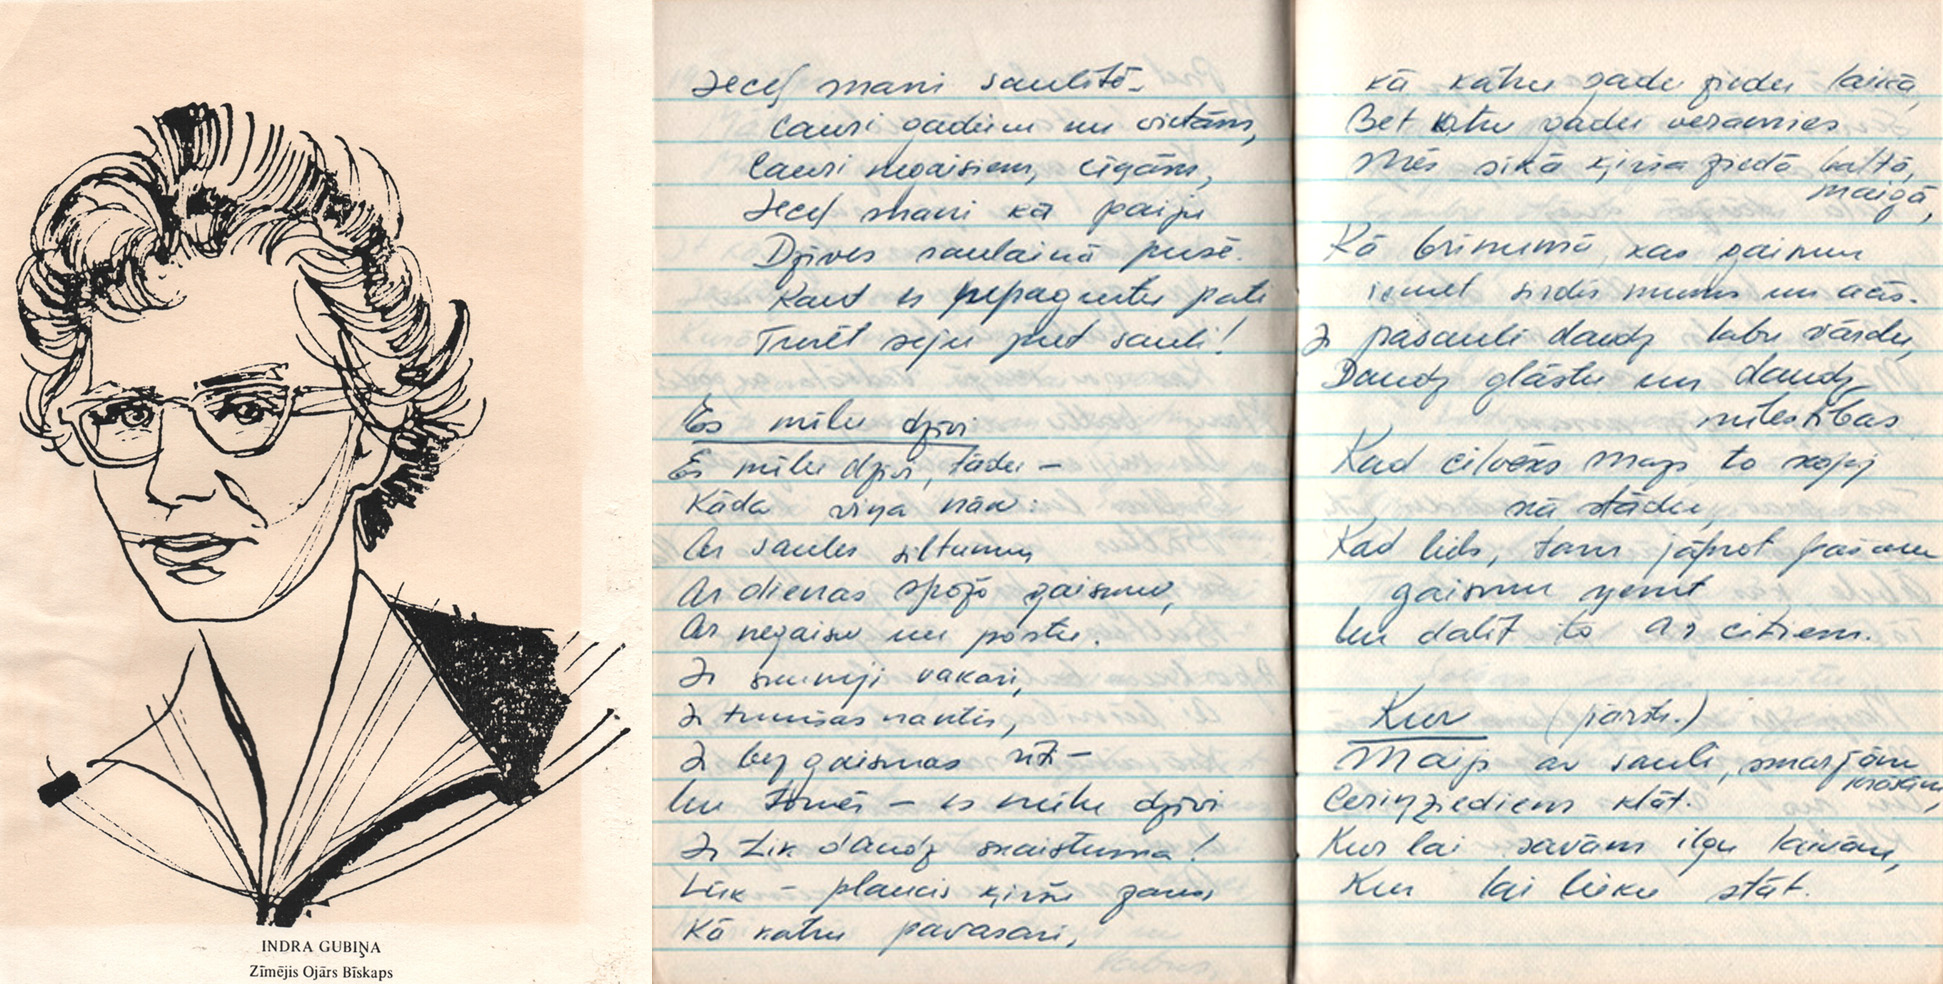 INDRA GUBIŅA
Zīmējis Ojārs Bīskaps
Iecel mani saulītē
Cauri gadiem un vietām,
Cauri negaisiem, cīņām,
Iecel mani kā paiju
Dzīves saulainā pusē.
Kaut es nepagurtu pate
Turēt seju pret sauli!
Es mīlu dzīvi
Es mīlu dzīvi, tādu –
Kāda viņa nāk:
Ar saules siltumu
Ar dienas spožo gaismu,
Ar negaisu un postu.
Ir skumji vakari,
Ir tumšas naktis,
Ir bez gaismas rīt –
Un tomēr – es mīlu dzīvi
Ir tik daudz skaistuma!
Lūk – plaucis ķiršu zars
Kā katru pavasari,
kā katru gadu ziedu laikā,
Bet katru gadu veramies
Mēs sīkā ķirša ziedā baltā,
maigā,
Kā brīnumā, kas gaismu
ismet sirdīs mums un acīs.
Ir pasaulē daudz labu vārdu,
Daudz glāstu un daudz
mīlestības
Kad cilvēks mazs to kopj
kā stādu,
Kad liels, tam jāprot pašam
gaismu ņemt
Un dalīt to ar citiem.
Kur (pārstr.)
Maijs ar sauli, smaržām
krāsām,
Ceriņziediem klāt.
Kur lai savām ilgu laivām,
Kur lai lieku stāt.